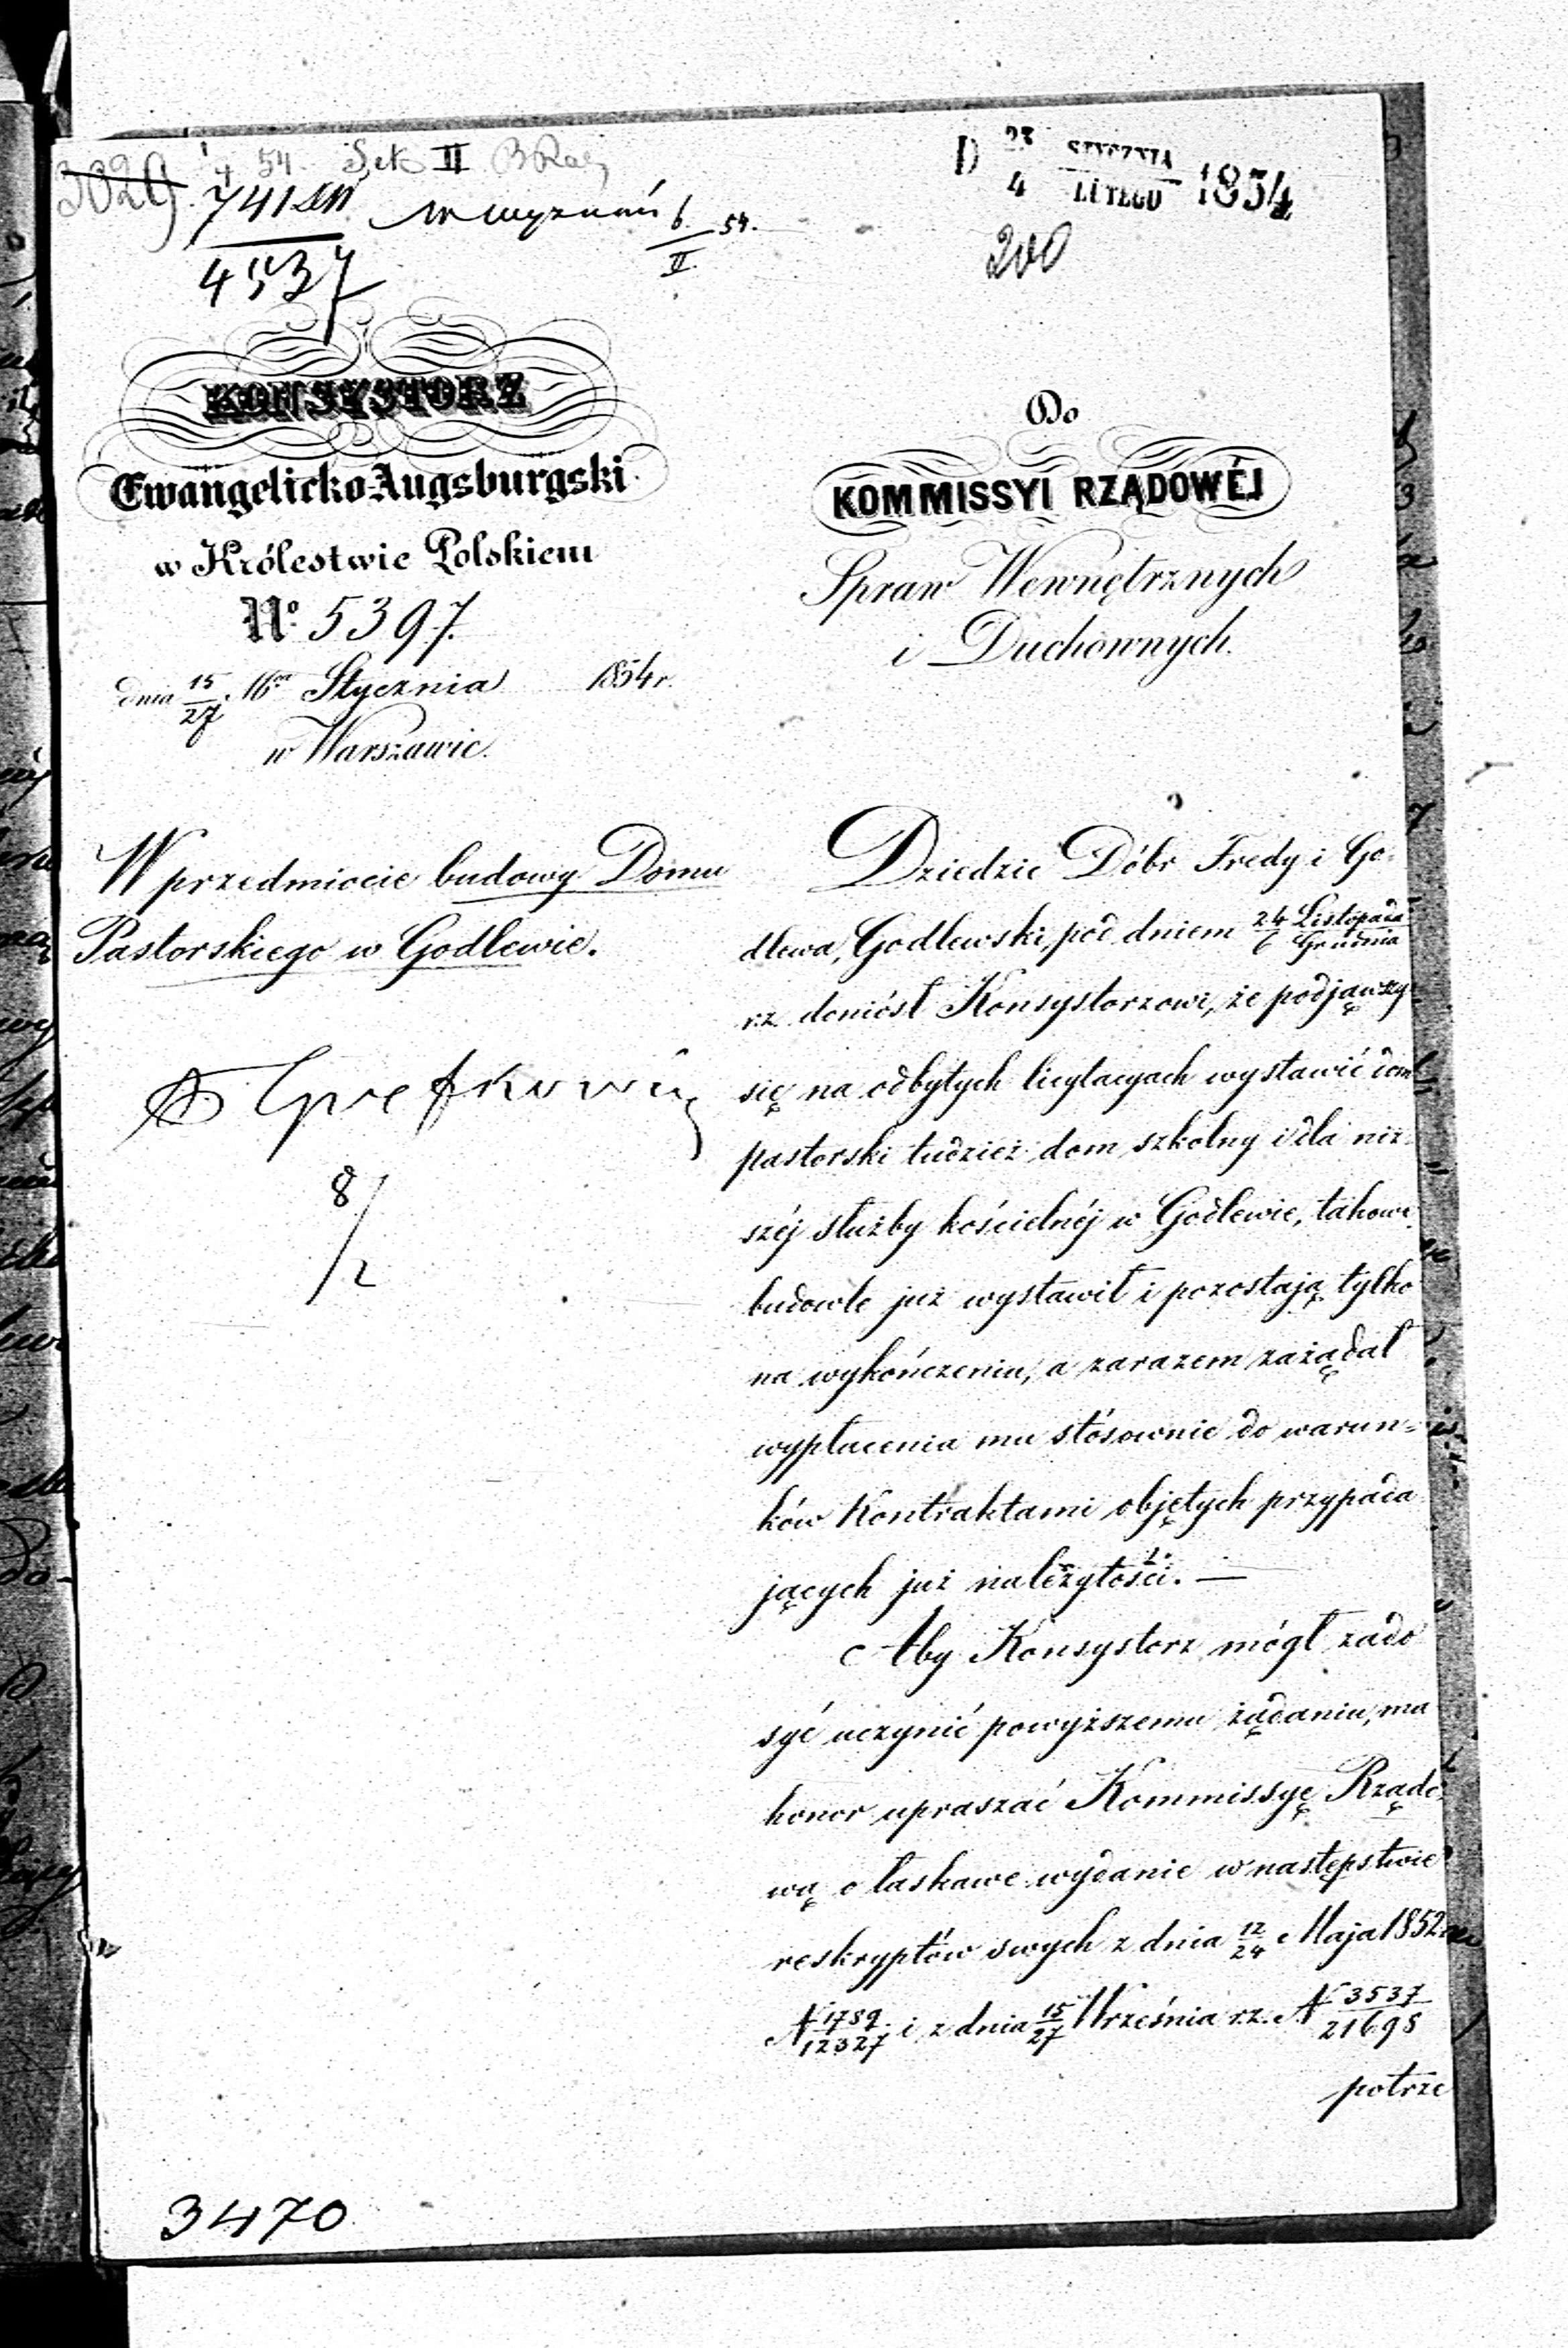 3029
4 54. Sek II
741
4537
w wyznań 6/II 54.
D 23/4 STYCZNIA/LUTEGO 1854
200
KONSYSTORZ
Ewangelicko-Augsburgski
w Królestwie Polskiem
No. 5397.
dnia 15/27 Stycznia 1854 r.
w Warszawie.
Do
KOMMISSYI RZĄDOWÉJ
Spraw Wewnętrznych
i Duchownych.
W przedmiocie budowy Domu
Pastorskiego w Godlewie.
8/2
Dziedzic Dóbr Fredy i Go-
dlewa, Godlewski, pod dniem 24 Listopada/6 Grudnia
r.z. doniósł Konsystorzowi, że podjąwszy
się na odbytych licytacyach wystawić dom
pastorski tudzież dom szkolny i dla niż-
széj służby kościelnéj w Godlewie, takowe
budowle już wystawił i pozostają tylko
na wykończeniu, a zarazem zażądał
wypłacenia mu stósownie do warun=
ków Kontraktami objętych przypada
jących już należytości. —
Aby Konsystorz mógł zado
syć uczynić powyższemu żądaniu, ma
honor upraszać Kommissyę Rządo
wą o łaskawe wydanie w następstwie
reskryptów swych z dnia 12/24 Maja 1852
N 1789/12327 i z dnia 15/27 Września r.z. N 3537/21698
potrze
3470